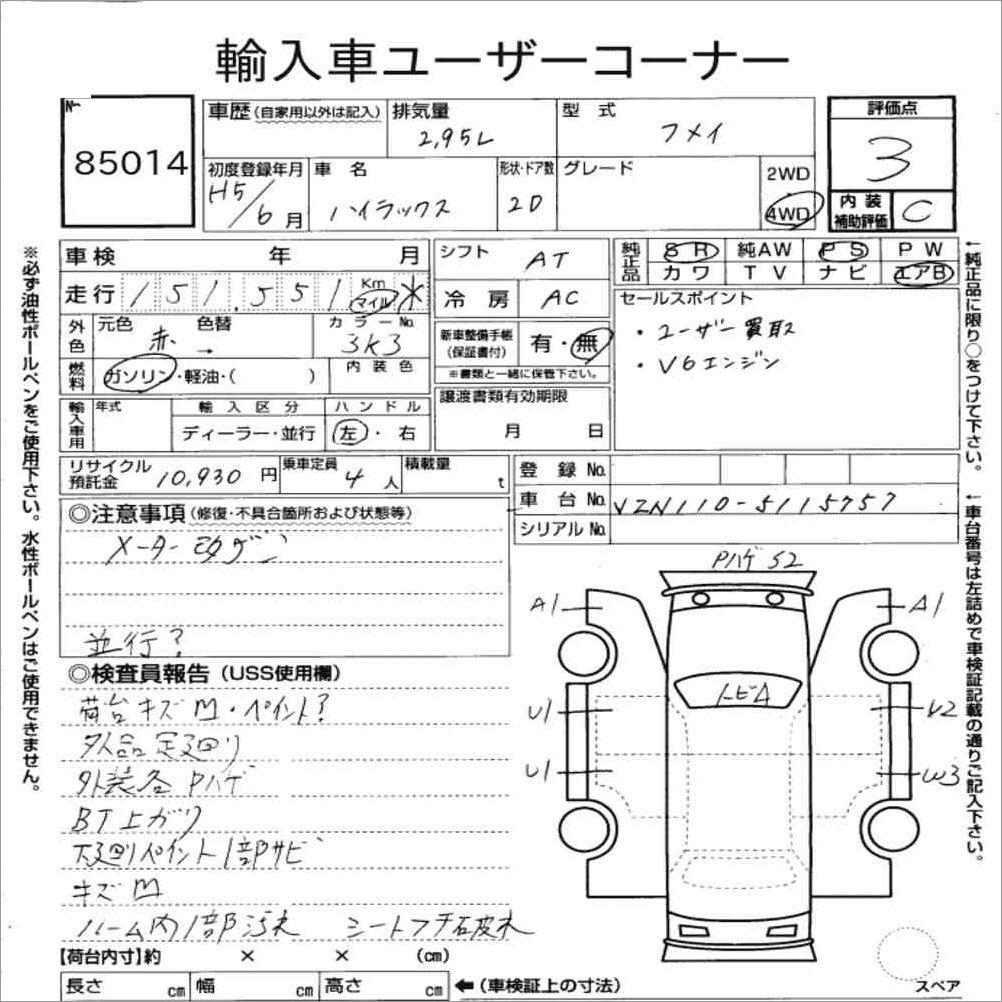 輸入車ユーザーコーナー
No.
85014
車歴(自家用以外は記入)
排気量
2,95L
型 式
フメイ
評価点
3
初度登録年月
H5/6月
車 名
ハイラックス
形状・ドア数
2D
グレード
2WD
4WD
内装補助評価
C
※必ず油性ボールペンをご使用下さい。水性ボールペンはご使用できません。
車検 年 月
走行 151,551 Km マイル *
シフト AT
冷房 AC
純正品
SR 純AW PS PW
カワ TV ナビ エアB
セールスポイント
・ユーザー買取
・V6エンジン
外色
元色 赤 色替 →
カラーNo. 3K3
燃料
ガソリン・軽油・( )
内装色
新車整備手帳
(保証書付)
有・無
※書類と一緒に保管下さい。
輸入車用
年式
輸入区分
ディーラー・並行
ハンドル
左・右
譲渡書類有効期限
月 日
←純正品に限り○をつけて下さい。
リサイクル預託金 10,930円
乗車定員 4人
積載量 t
登録No.
車台No. VZN110-5115757
シリアルNo.
←車台番号は左詰めで車検証記載の通りご記入下さい。
◎注意事項(修復・不具合箇所および状態等)
メーター改ザン
並行?
◎検査員報告(USS使用欄)
荷台キズM・ペイント?
外品足廻り
外装各Pハゲ
BT上ガリ
下廻リペイント1部サビ
キズM
ルーム内1部汚れ シートフチ破れ
PハゲS2
A1
A1
トビA
U1
U2
U1
W3
スペア
【荷台内寸】約 × × (cm)
長さ cm 幅 cm 高さ cm ←(車検証上の寸法)